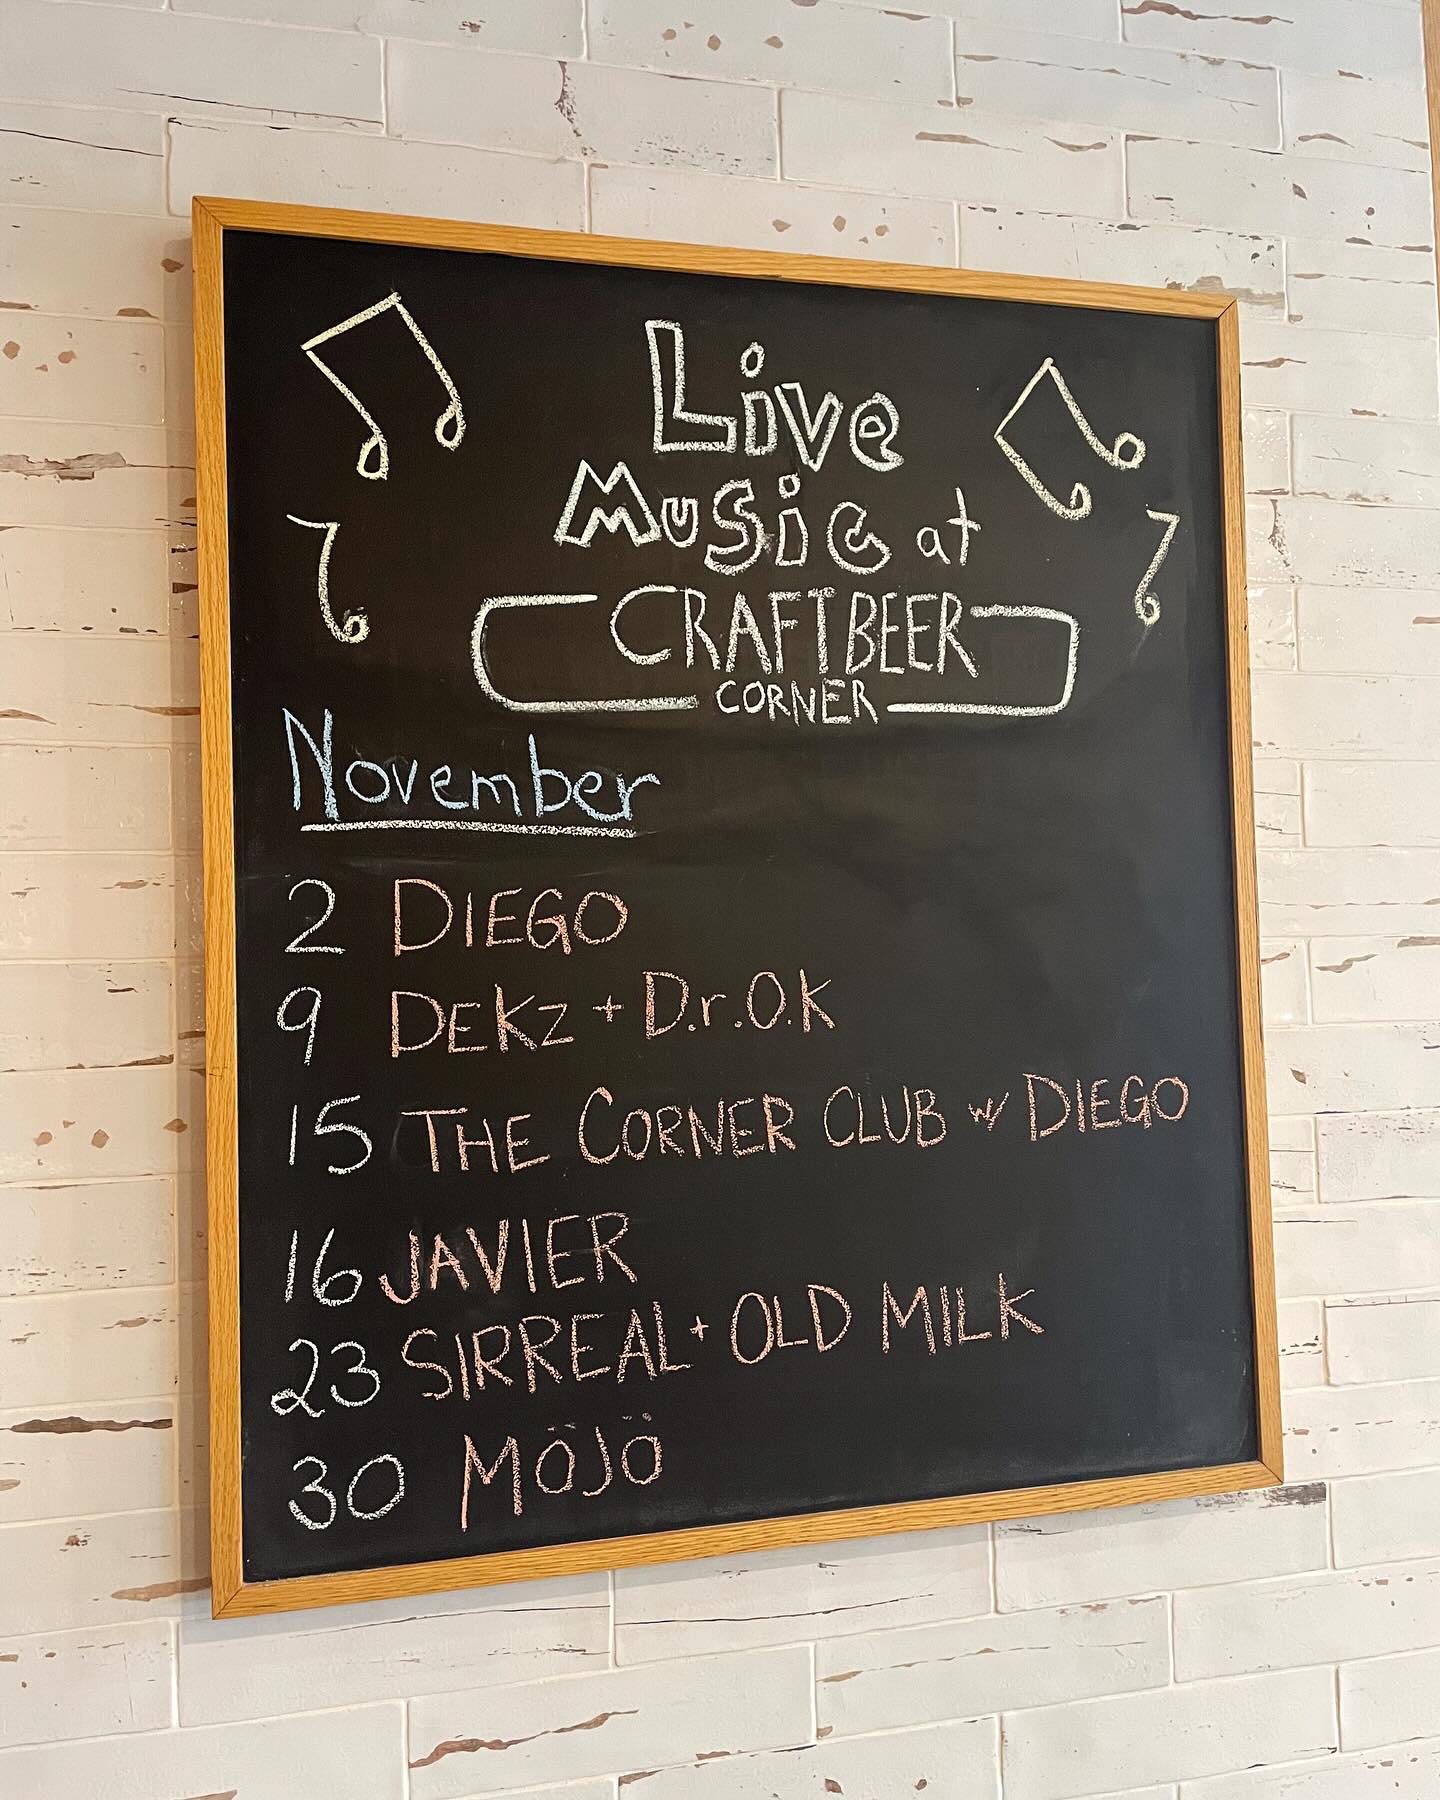 Live
Music at
CRAFTBEER
CORNER
November
2 DIEGO
9 DEKZ + D.r.O.K
15 THE CORNER CLUB w/ DIEGO
16 JAVIER
23 SIRREAL + OLD MILK
30 MÖJÖ